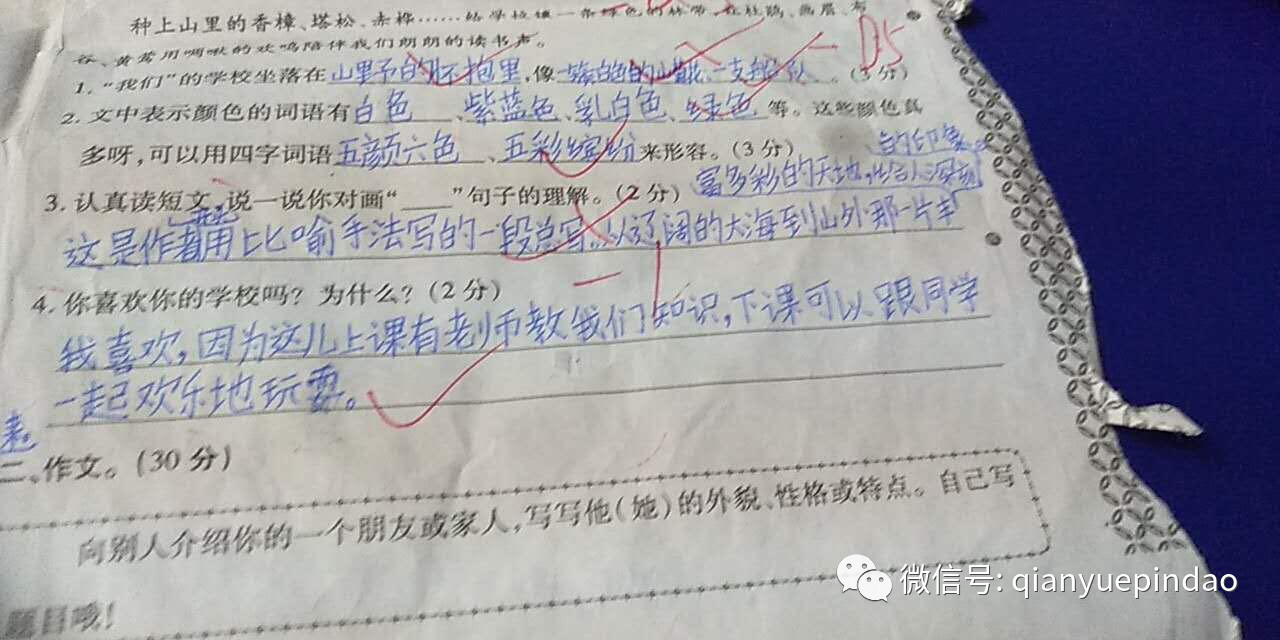 种上山里的香樟、塔松、赤桦……给学校镶一条绿色的林带,让杜鹃、画眉、布
谷、黄莺用啁啾的欢鸣陪伴我们朗朗的读书声。
1. “我们”的学校坐落在山里的怀抱里,像一簇白色的山, 一支 (3分)
2. 文中表示颜色的词语有白色、紫蓝色、乳白色、绿色等。这些颜色真
多呀,可以用四字词语五颜六色、五彩缤纷来形容。(3分)
的印象。
富多彩的天地,给人深刻
3. 认真读短文,说一说你对画“____”句子的理解。(2分)
这是作者用比喻手法写的一段总写。从辽阔的大海到山外那一片丰
4. 你喜欢你的学校吗?为什么?(2分)
我喜欢,因为这儿上课有老师教我们知识,下课可以跟同学
一起欢乐地玩耍。
二、作文。(30分)
向别人介绍你的一个朋友或家人,写写他(她)的外貌、性格或特点。自己写
题目哦!
微信号: qianyuepindao